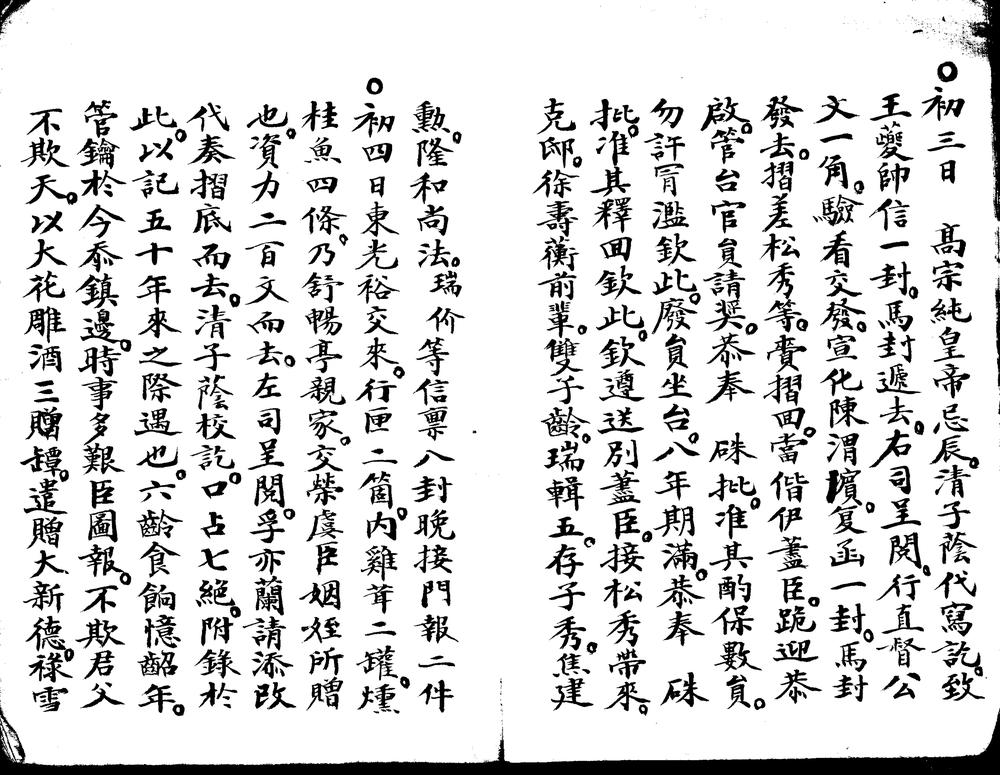 〇初三日　高宗純皇帝忌辰。清子蔭代寫訖。致
王夔帥信一封。馬封遞去。右司呈閱。行直督公
文一角。驗看交發。宣化陳渭璸复函一封。馬封
發去。摺差松秀等。賫摺回。當偕伊藎臣。跪迎恭
啟。管台官員請獎。恭奉　硃批。准其酌保數員。
勿許冐濫欽此。廢員坐台。八年期滿。恭奉　硃
批。准其釋回欽此。欽遵送別藎臣。接松秀帶來。
克邸。徐壽蘅前輩。雙子齡。瑞輯五。存子秀。焦建
勲。隆和尚法。瑞价等信稟八封晚接門報二件
〇初四日東光裕交來。行匣二箇。内雞茸二罐。燻
桂魚四條。乃舒暢亭親家。交榮虞臣姻姪所贈
也。資力二百文而去。左司呈閱。孚亦蘭請添改
代奏摺底而去。清子蔭校訖。口占七絕。附錄於
此。以記五十年來之際遇也。六齡食餉憶齠年。
管鑰於今忝鎮邊。時事多艱臣圖報。不欺君父
不欺天。以大花雕酒三贈罈。遣贈大新德。祿雪